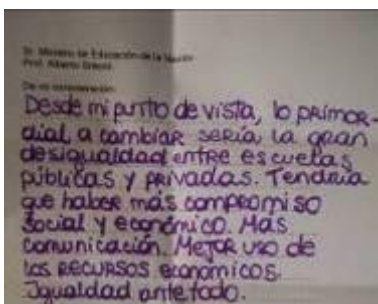 Sr. Ministro de Educación de la Nación
Prof. Alberto
De mi consideración:
Desde mi punto de vista, lo primor-
dial a cambiar sería la gran
desigualdad entre escuelas
públicas y privadas. Tendría
que haber más compromiso
social y económico. Más
comunicación. Mejor uso de
los recursos económicos.
Igualdad ante todo.